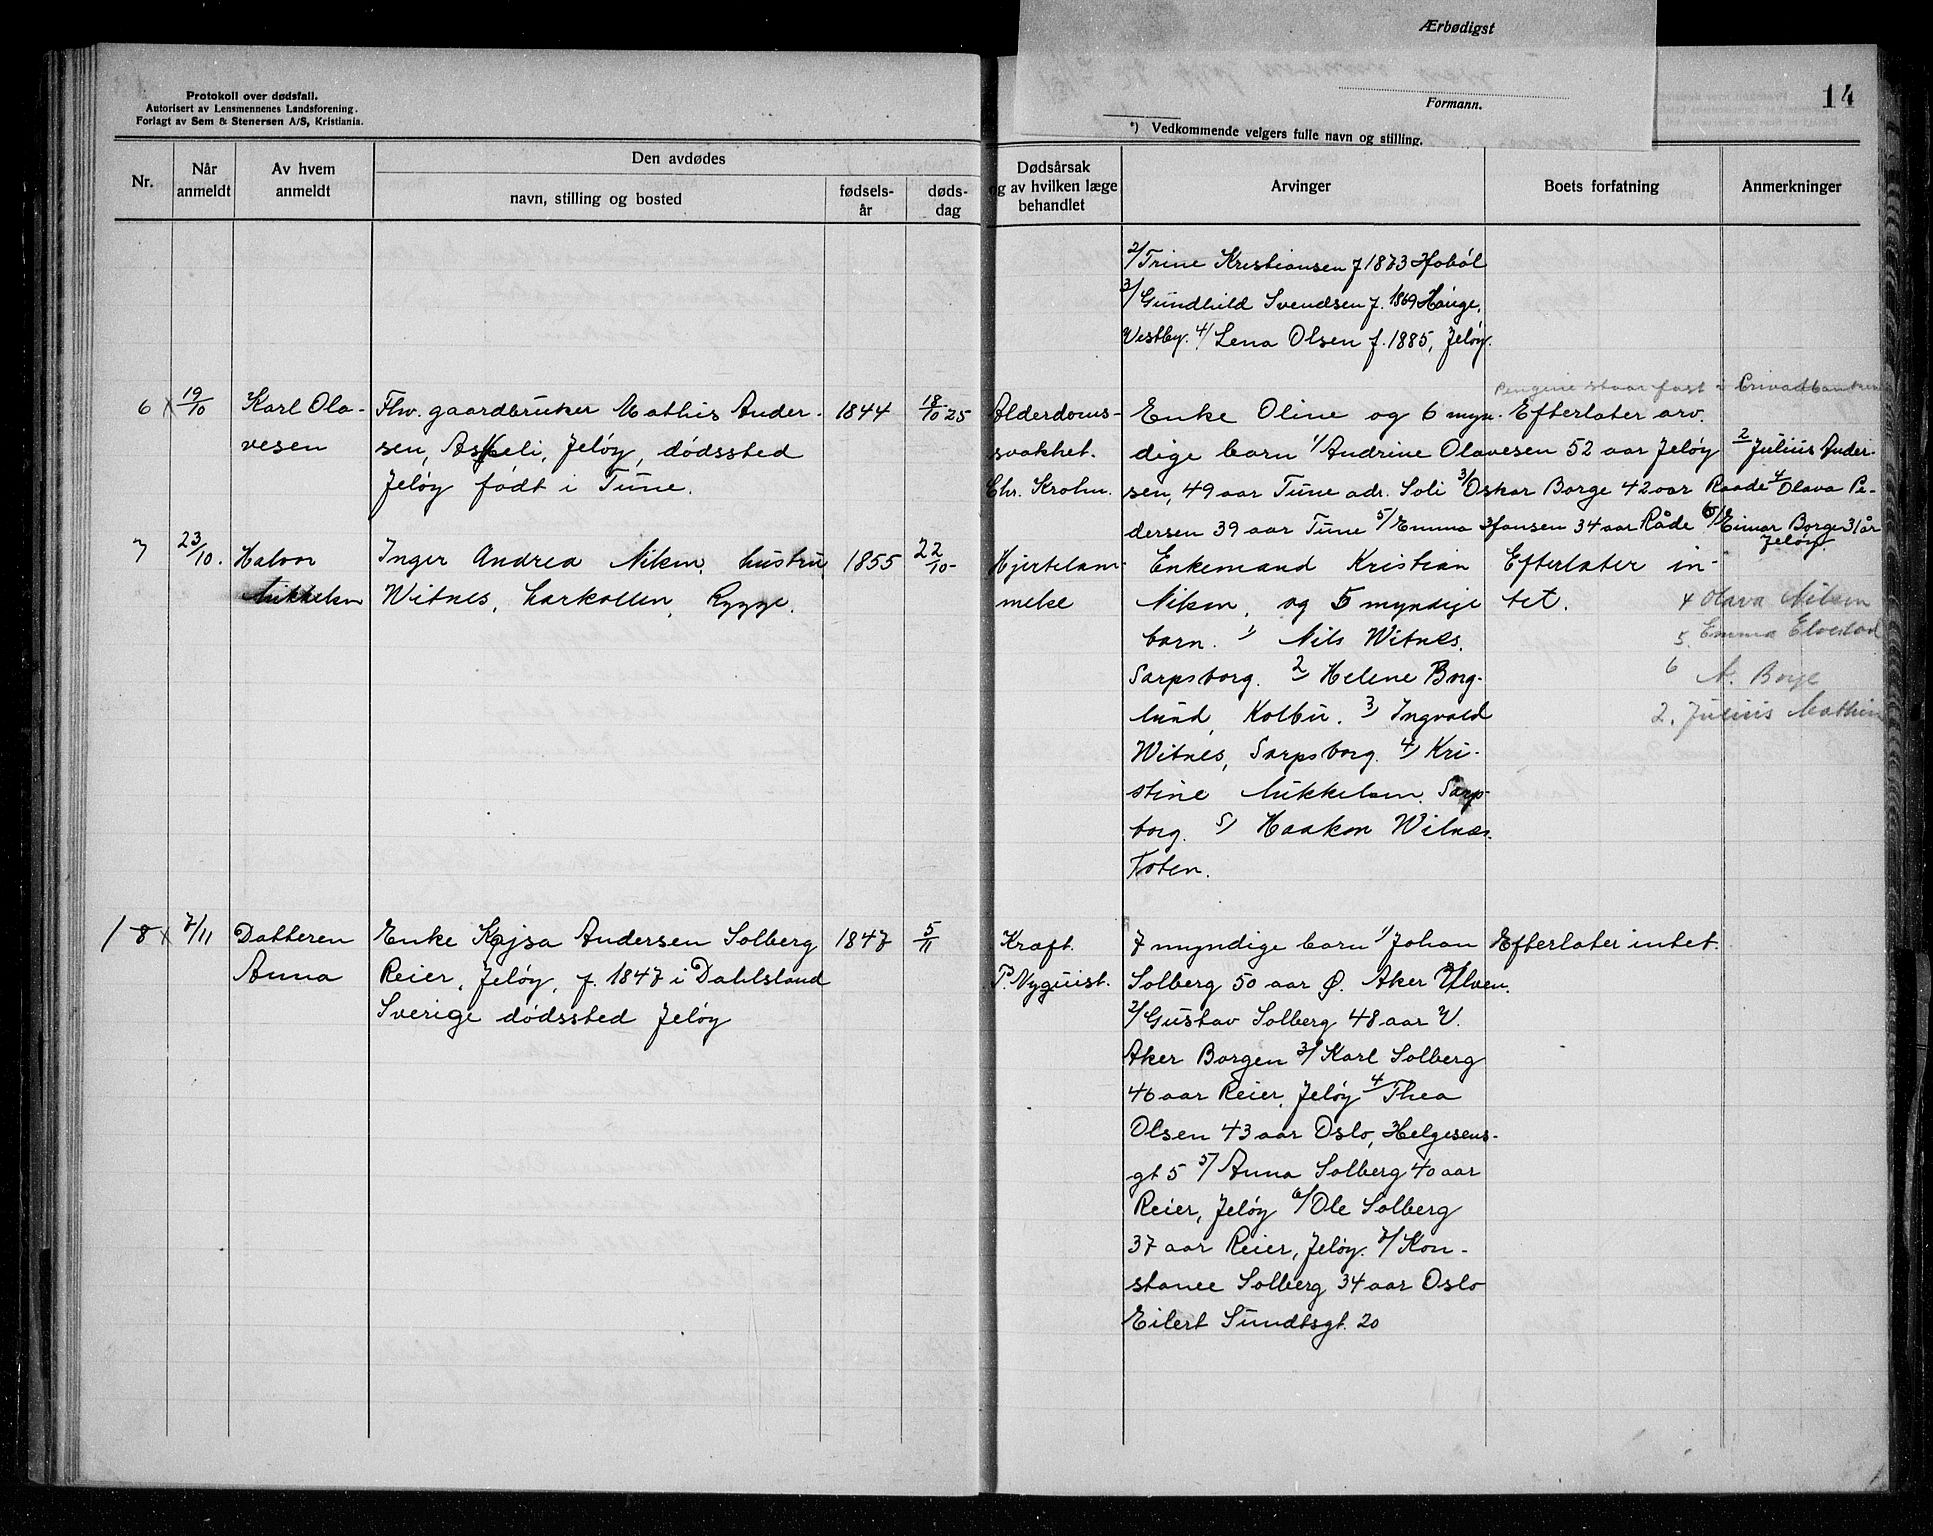 Ærbødigst
Formann.
*) Vedkommende velgers fulle navn og stilling.
14
Protokoll over dødsfall.
Autorisert av Lensmennenes Landsforening.
Forlagt av Sem & Stenersen A/S, Kristiania.
Nr.
Når anmeldt
Av hvem anmeldt
Den avdødes
navn, stilling og bosted
fødsels-år
døds-dag
Dødsårsak og av hvilken læge behandlet
Arvinger
Boets forfatning
Anmerkninger
2/ Trine Kristiansen f 1873 Hobøl
3/ Gundhild Svendsen f. 1869 Hauge,
Vestby. 4/ Lena Olsen f. 1885, Jeløy.
6 x
19/10
Karl Ola-
vesen
Fhv. gaardbruker Mathis Ander-
sen, Askeli, Jeløy, dødssted
Jeløy født i Tune.
1844
18/10 25
Alderdoms-
svakhet.
Chr. Krohn.
Pengene staar fast i Privatbanken
Enke Oline og 6 myn- Efterlater arv.
dige barn 1/ Andrine Olavesen 52 aar Jeløy 2/ Julius Ander-
sen, 49 aar Tune adr. Soli 3/ Oskar Borge 42 aar Raade 4/ Olava Pe-
dersen 39 aar Tune 5/ Emma Hansen 34 aar Råde 6/ Einar Borge 31 år
Jeløy.
7
23/10.
Halvor
Mikkelsen
Inger Andrea Nilsen, hustru
Witnes, Larkollen, Rygge.
1855
22/10-
Hjertelam-
melse
Enkemand Kristian
Nilsen, og 5 myndige
barn. 1) Nils Witnes,
Sarpsborg. 2) Helene Borg-
lund, Kolbu. 3) Ingvald
Witnes, Sarpsborg. 4) Kri-
stine Mikkelsen. Sarps-
borg. 5) Haakon Witnes.
Toten.
Efterlater in-
tet.
4 Olava Nilsen
5. Emma Elvestad
6 N. Borge
2. Julius Mathisen
/ 8 x
7/11
Datteren
Anna
Enke Kajsa Andersen Solberg
Reier, Jeløy, f. 1847 i Dahlsland
Sverige dødssted Jeløy
1847
5/11
Kræft.
P. Nyquist.
7 myndige barn 1/ Johan
Solberg 50 aar Ø. Aker Ulven.
2/ Gustav Solberg 48 aar V.
Aker Borgen 3/ Karl Solberg
46 aar Reier, Jeløy 4/ Thea
Olsen 43 aar Oslo, Helgesens-
gt 5 5/ Anna Solberg 40 aar
Reier, Jeløy 6/ Ole Solberg
37 aar Reier, Jeløy. 7/ Kon-
stance Solberg 34 aar Oslo
Eilert Sundtsgt. 20
Efterlater intet.